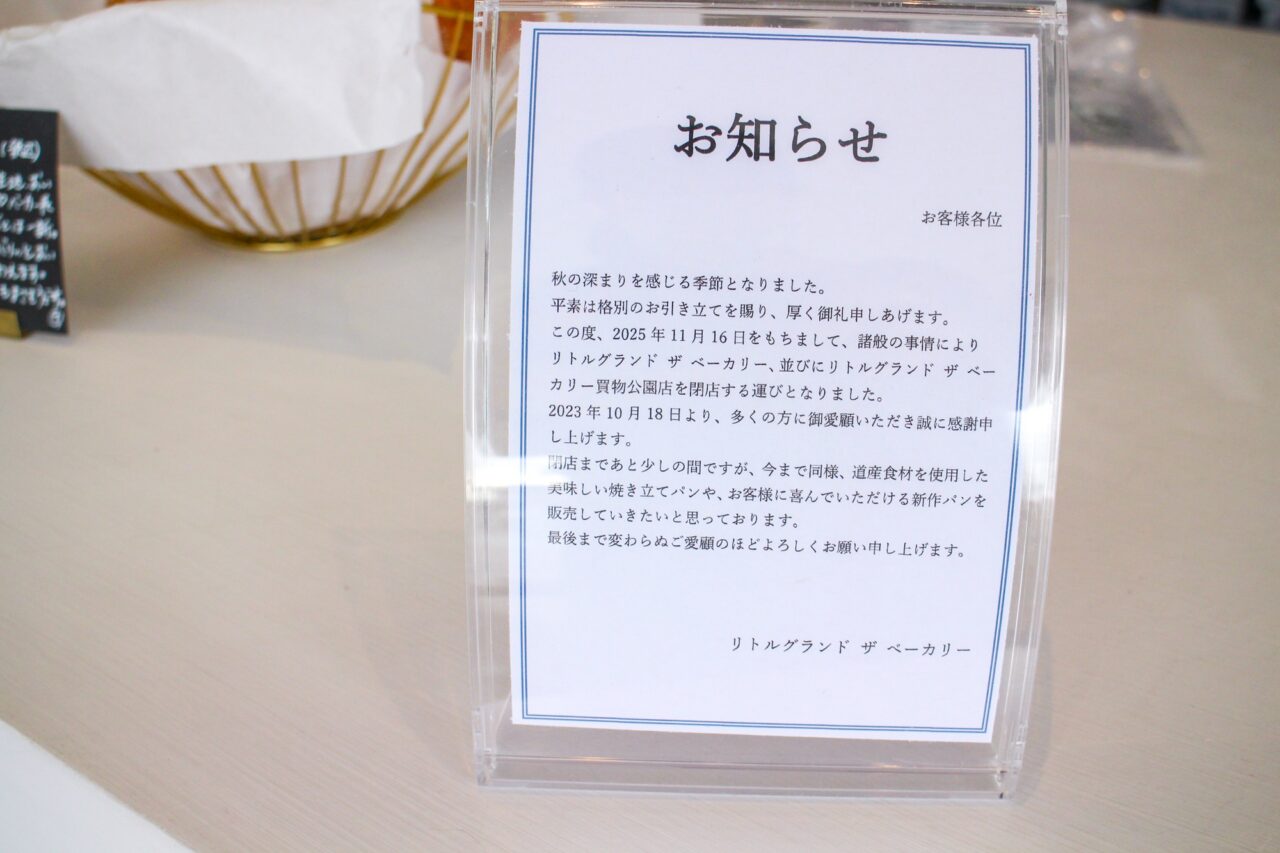 お知らせ
お客様各位
秋の深まりを感じる季節となりました。
平素は格別のお引き立てを賜り、厚く御礼申しあげます。
この度、2025年11月16日をもちまして、諸般の事情により
リトルグランド ザ ベーカリー、並びにリトルグランド ザ ベー
カリー買物公園店を閉店する運びとなりました。
2023年10月18日より、多くの方に御愛顧いただき誠に感謝申
し上げます。
閉店まであと少しの間ですが、今まで同様、道産食材を使用した
美味しい焼き立てパンや、お客様に喜んでいただける新作パンを
販売していきたいと思っております。
最後まで変わらぬご愛顧のほどよろしくお願い申し上げます。
リトルグランド ザ ベーカリー